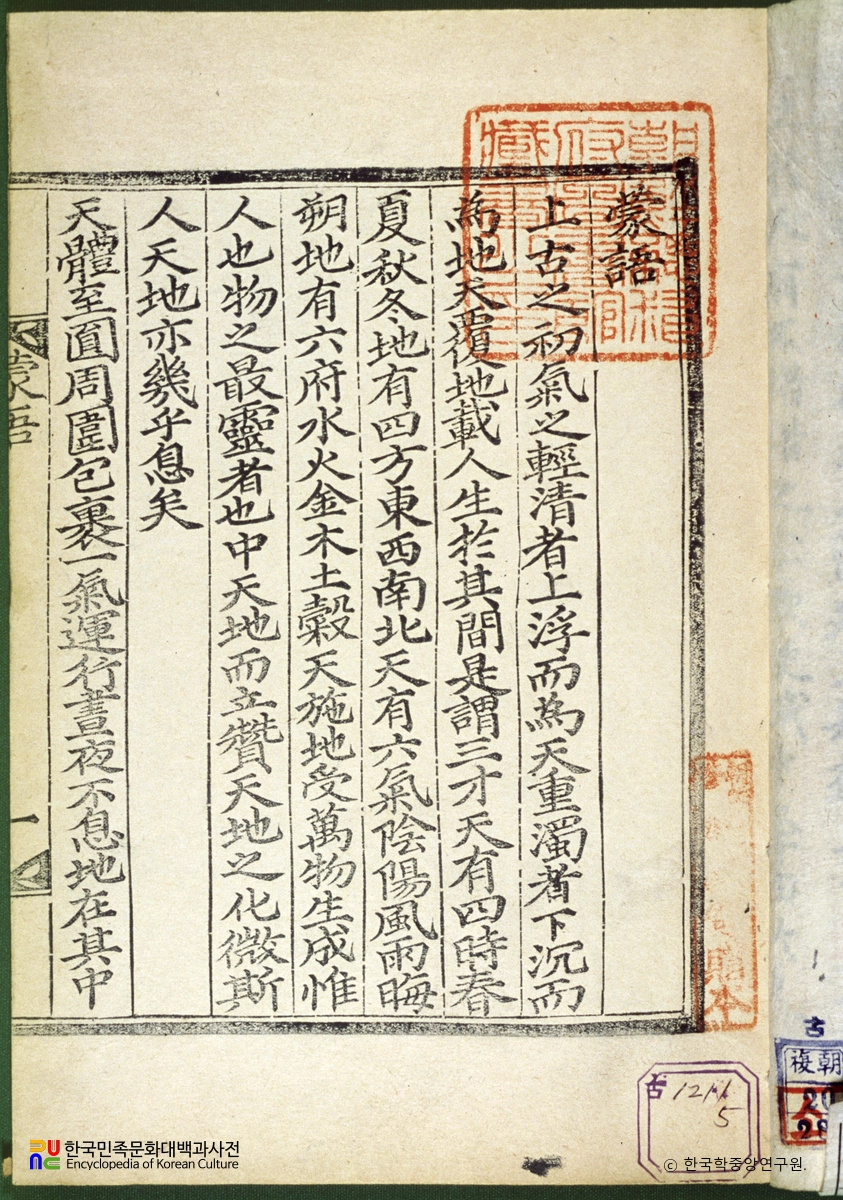 蒙語
上古之初氣之輕清者上浮而為天重濁者下沉而
為地天覆地載人生於其間是謂三才天有四時春
夏秋冬地有四方東西南北天有六氣陰陽風雨晦
朔地有六府水火金木土穀天施地受萬物生成惟
人也物之最靈者也中天地而立贊天地之化微斯
人天地亦幾乎息矣
天體至圓周圍包裹一氣運行晝夜不息地在其中
蒙語
一
古
朝
複
古 1211
5
한국민족문화대백과사전
Encyclopedia of Korean Culture
ⓒ 한국학중앙연구원.